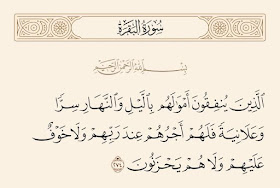 سُورَةُ البَقَرَةِ
بِسْمِ اللَّهِ الرَّحْمَٰنِ الرَّحِيمِ
ٱلَّذِينَ يُنفِقُونَ أَمْوَٰلَهُم بِٱلَّيْلِ وَٱلنَّهَارِ سِرًّا
وَعَلَانِيَةً فَلَهُمْ أَجْرُهُمْ عِندَ رَبِّهِمْ وَلَا خَوْفٌ
عَلَيْهِمْ وَلَا هُمْ يَحْزَنُونَ ٢٧٤